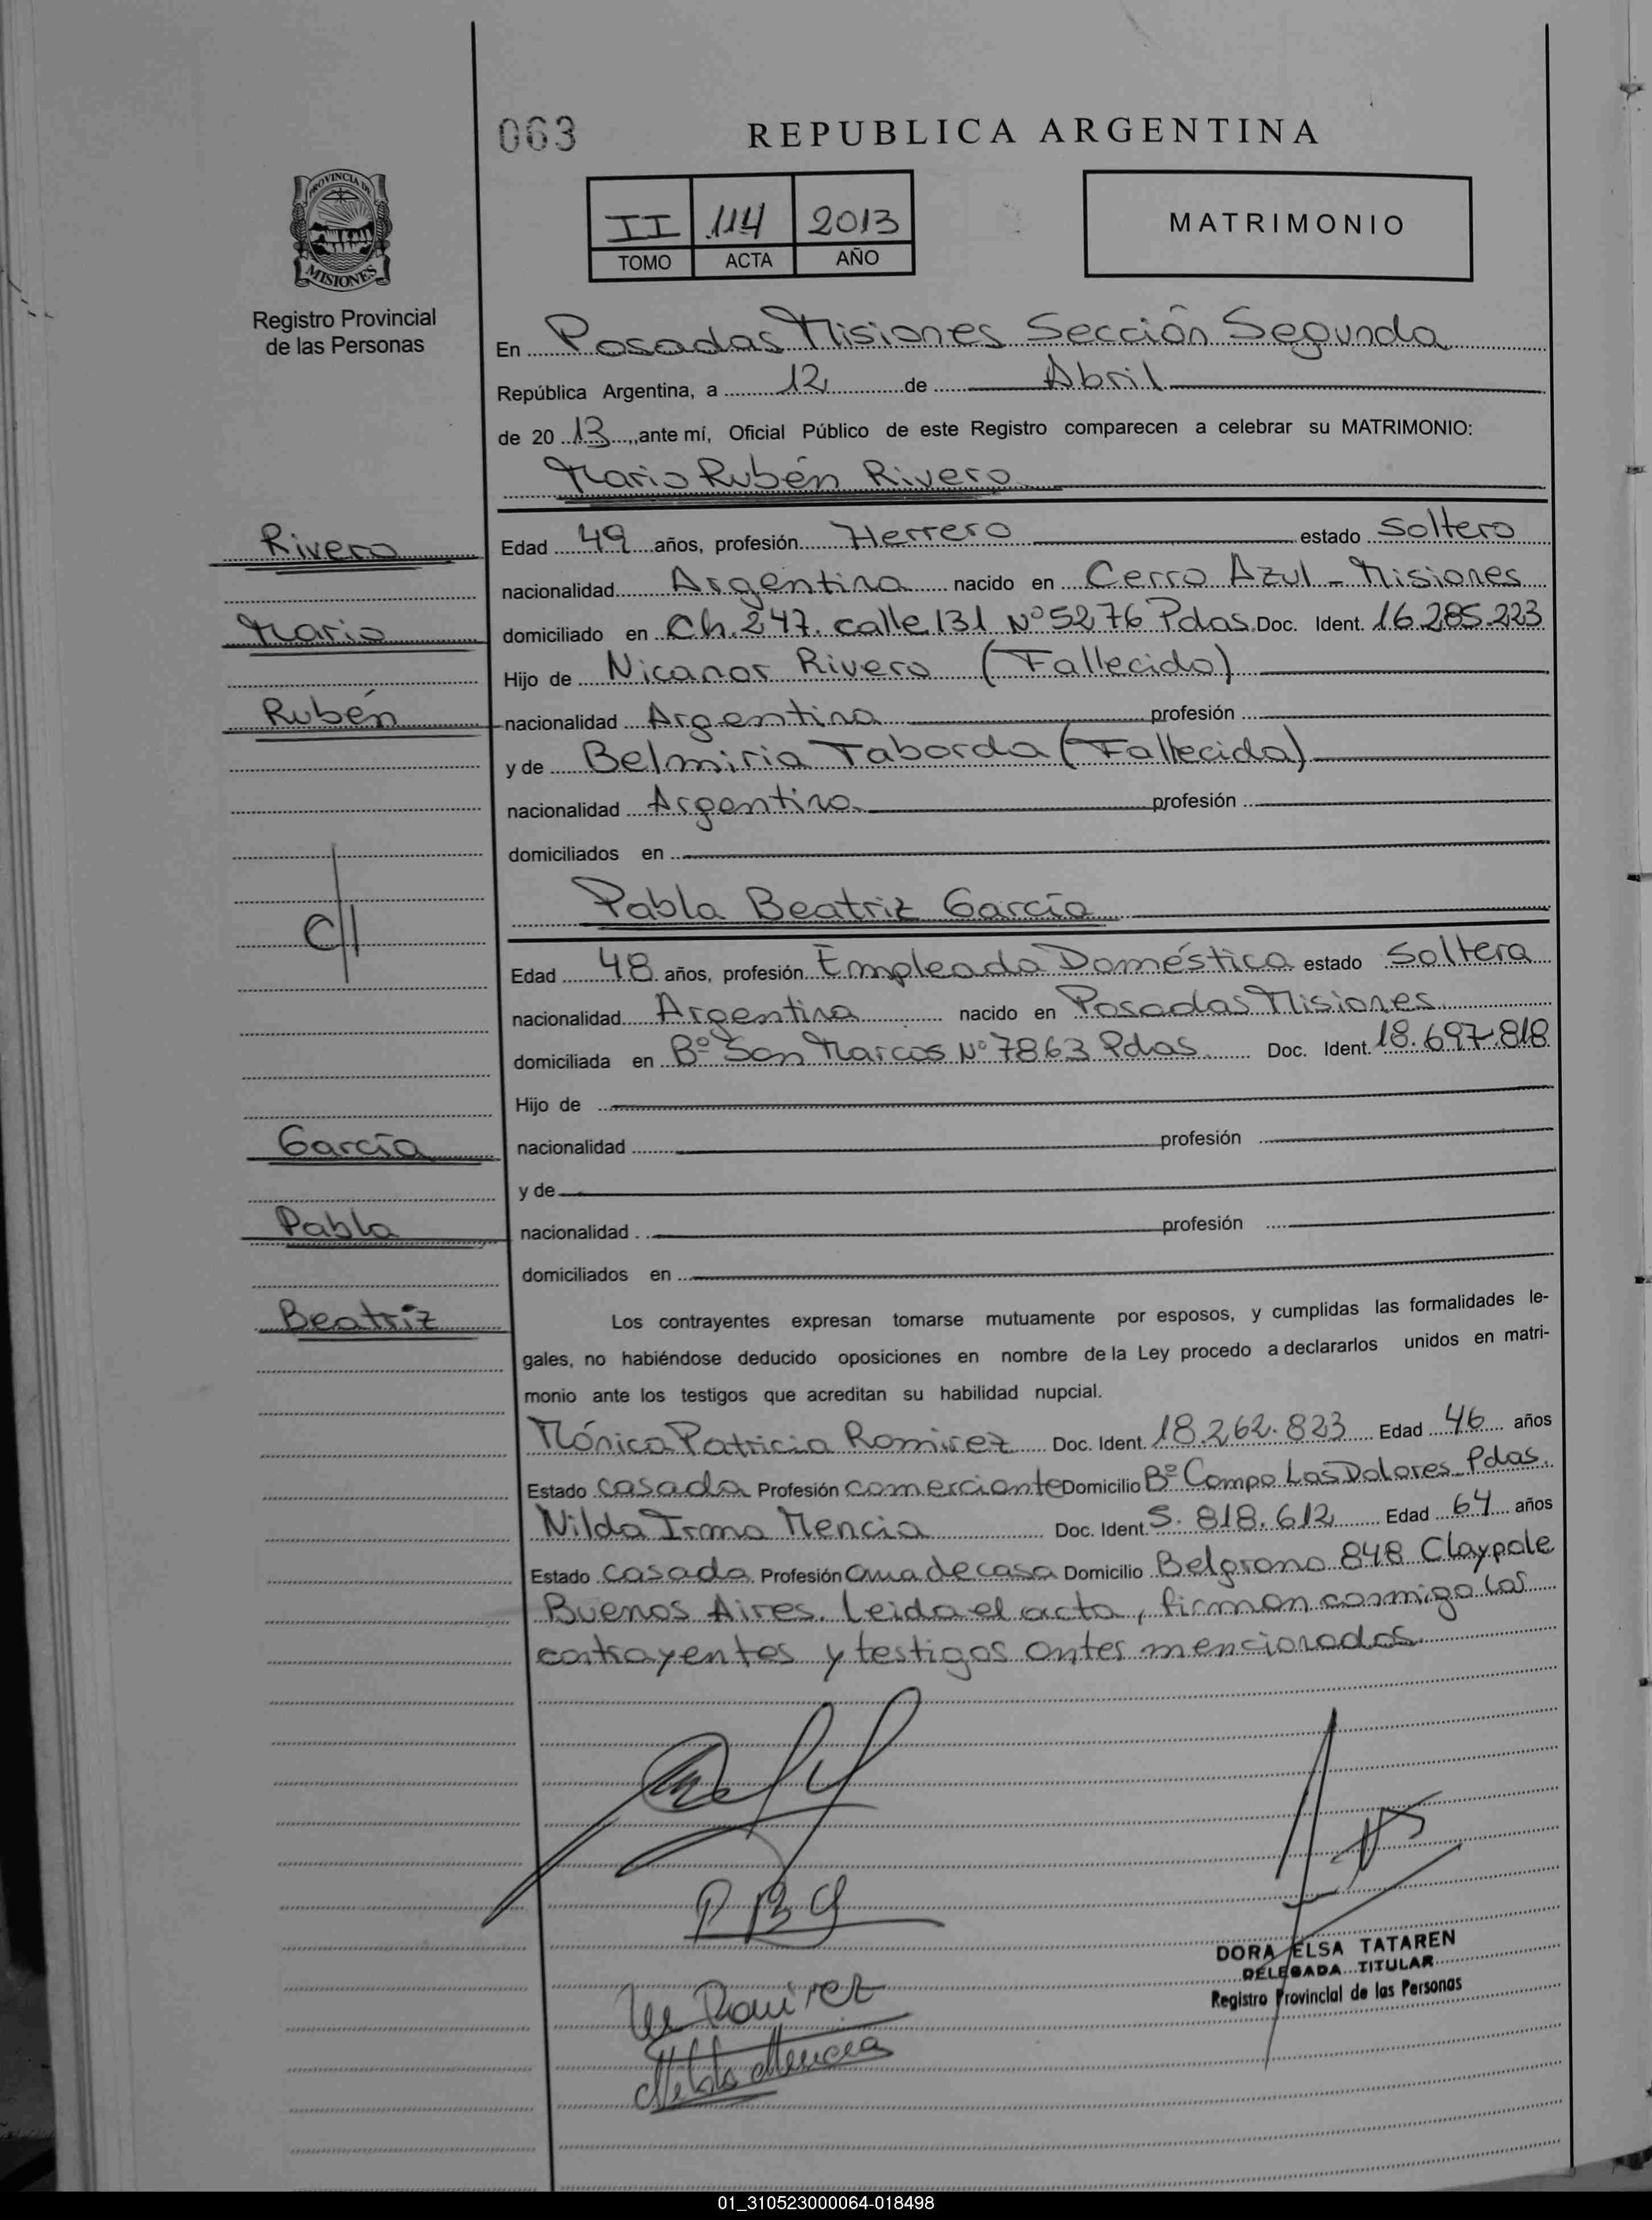 063
REPUBLICA ARGENTINA
PROVINCIA DE
MISIONES
II 114 2013
TOMO ACTA AÑO
MATRIMONIO
Registro Provincial
de las Personas
En Posadas Misiones Sección Segunda
República Argentina, a 12 de Abril
de 20 13, ante mí, Oficial Público de este Registro comparecen a celebrar su MATRIMONIO:
Mario Rubén Rivero
Rivero
Edad 49 años, profesión Herrero estado Soltero
nacionalidad Argentina nacido en Cerro Azul - Misiones
Mario
domiciliado en Ch. 247. calle 131 Nº 5276 Pdas. Doc. Ident. 16.285.223
Hijo de Nicanor Rivero (Fallecido)
Rubén
nacionalidad Argentina profesión
y de Belmiria Taborda (Fallecida)
nacionalidad Argentina profesión
domiciliados en
C//
Pabla Beatriz García
Edad 48 años, profesión Empleada Doméstica estado Soltera
nacionalidad Argentina nacido en Posadas Misiones
domiciliada en Bº San Marcos Nº 7863 Pdas Doc. Ident. 18.697.818
Hijo de
García
nacionalidad profesión
y de
Pabla
nacionalidad profesión
domiciliados en
Beatriz
Los contrayentes expresan tomarse mutuamente por esposos, y cumplidas las formalidades le-
gales, no habiéndose deducido oposiciones en nombre de la Ley procedo a declararlos unidos en matri-
monio ante los testigos que acreditan su habilidad nupcial.
Mónica Patricia Ramirez Doc. Ident. 18.262.823 Edad 46 años
Estado casada Profesión comerciante Domicilio Bº Campo Las Dolores Pdas.
Nilda Irma Mencia Doc. Ident. 5.818.612 Edad 64 años
Estado casada Profesión ama de casa Domicilio Belgrano 848 Claypole
Buenos Aires. Leida el acta, firman conmigo los
contrayentes y testigos antes mencionados
P B G
Ramirez
Nilda Mencia
DORA ELSA TATAREN
DELEGADA TITULAR
Registro Provincial de las Personas
01_310523000064-018498